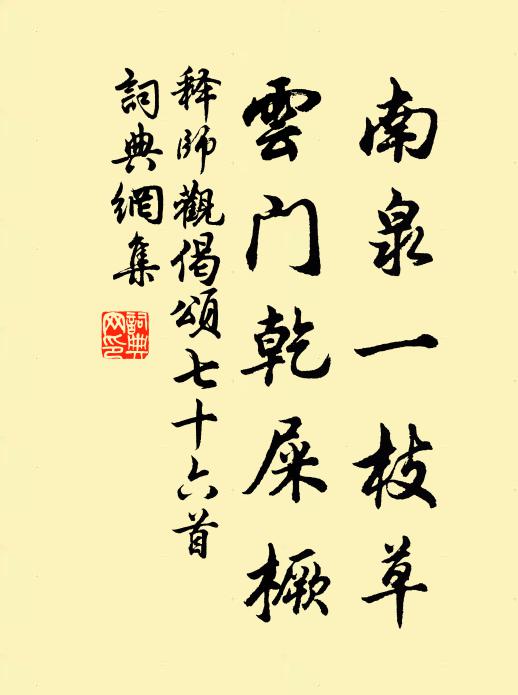 南泉一枝草
雲门乾屎橛
释师觀偈頌七十六首
詞典網集
詞典网印